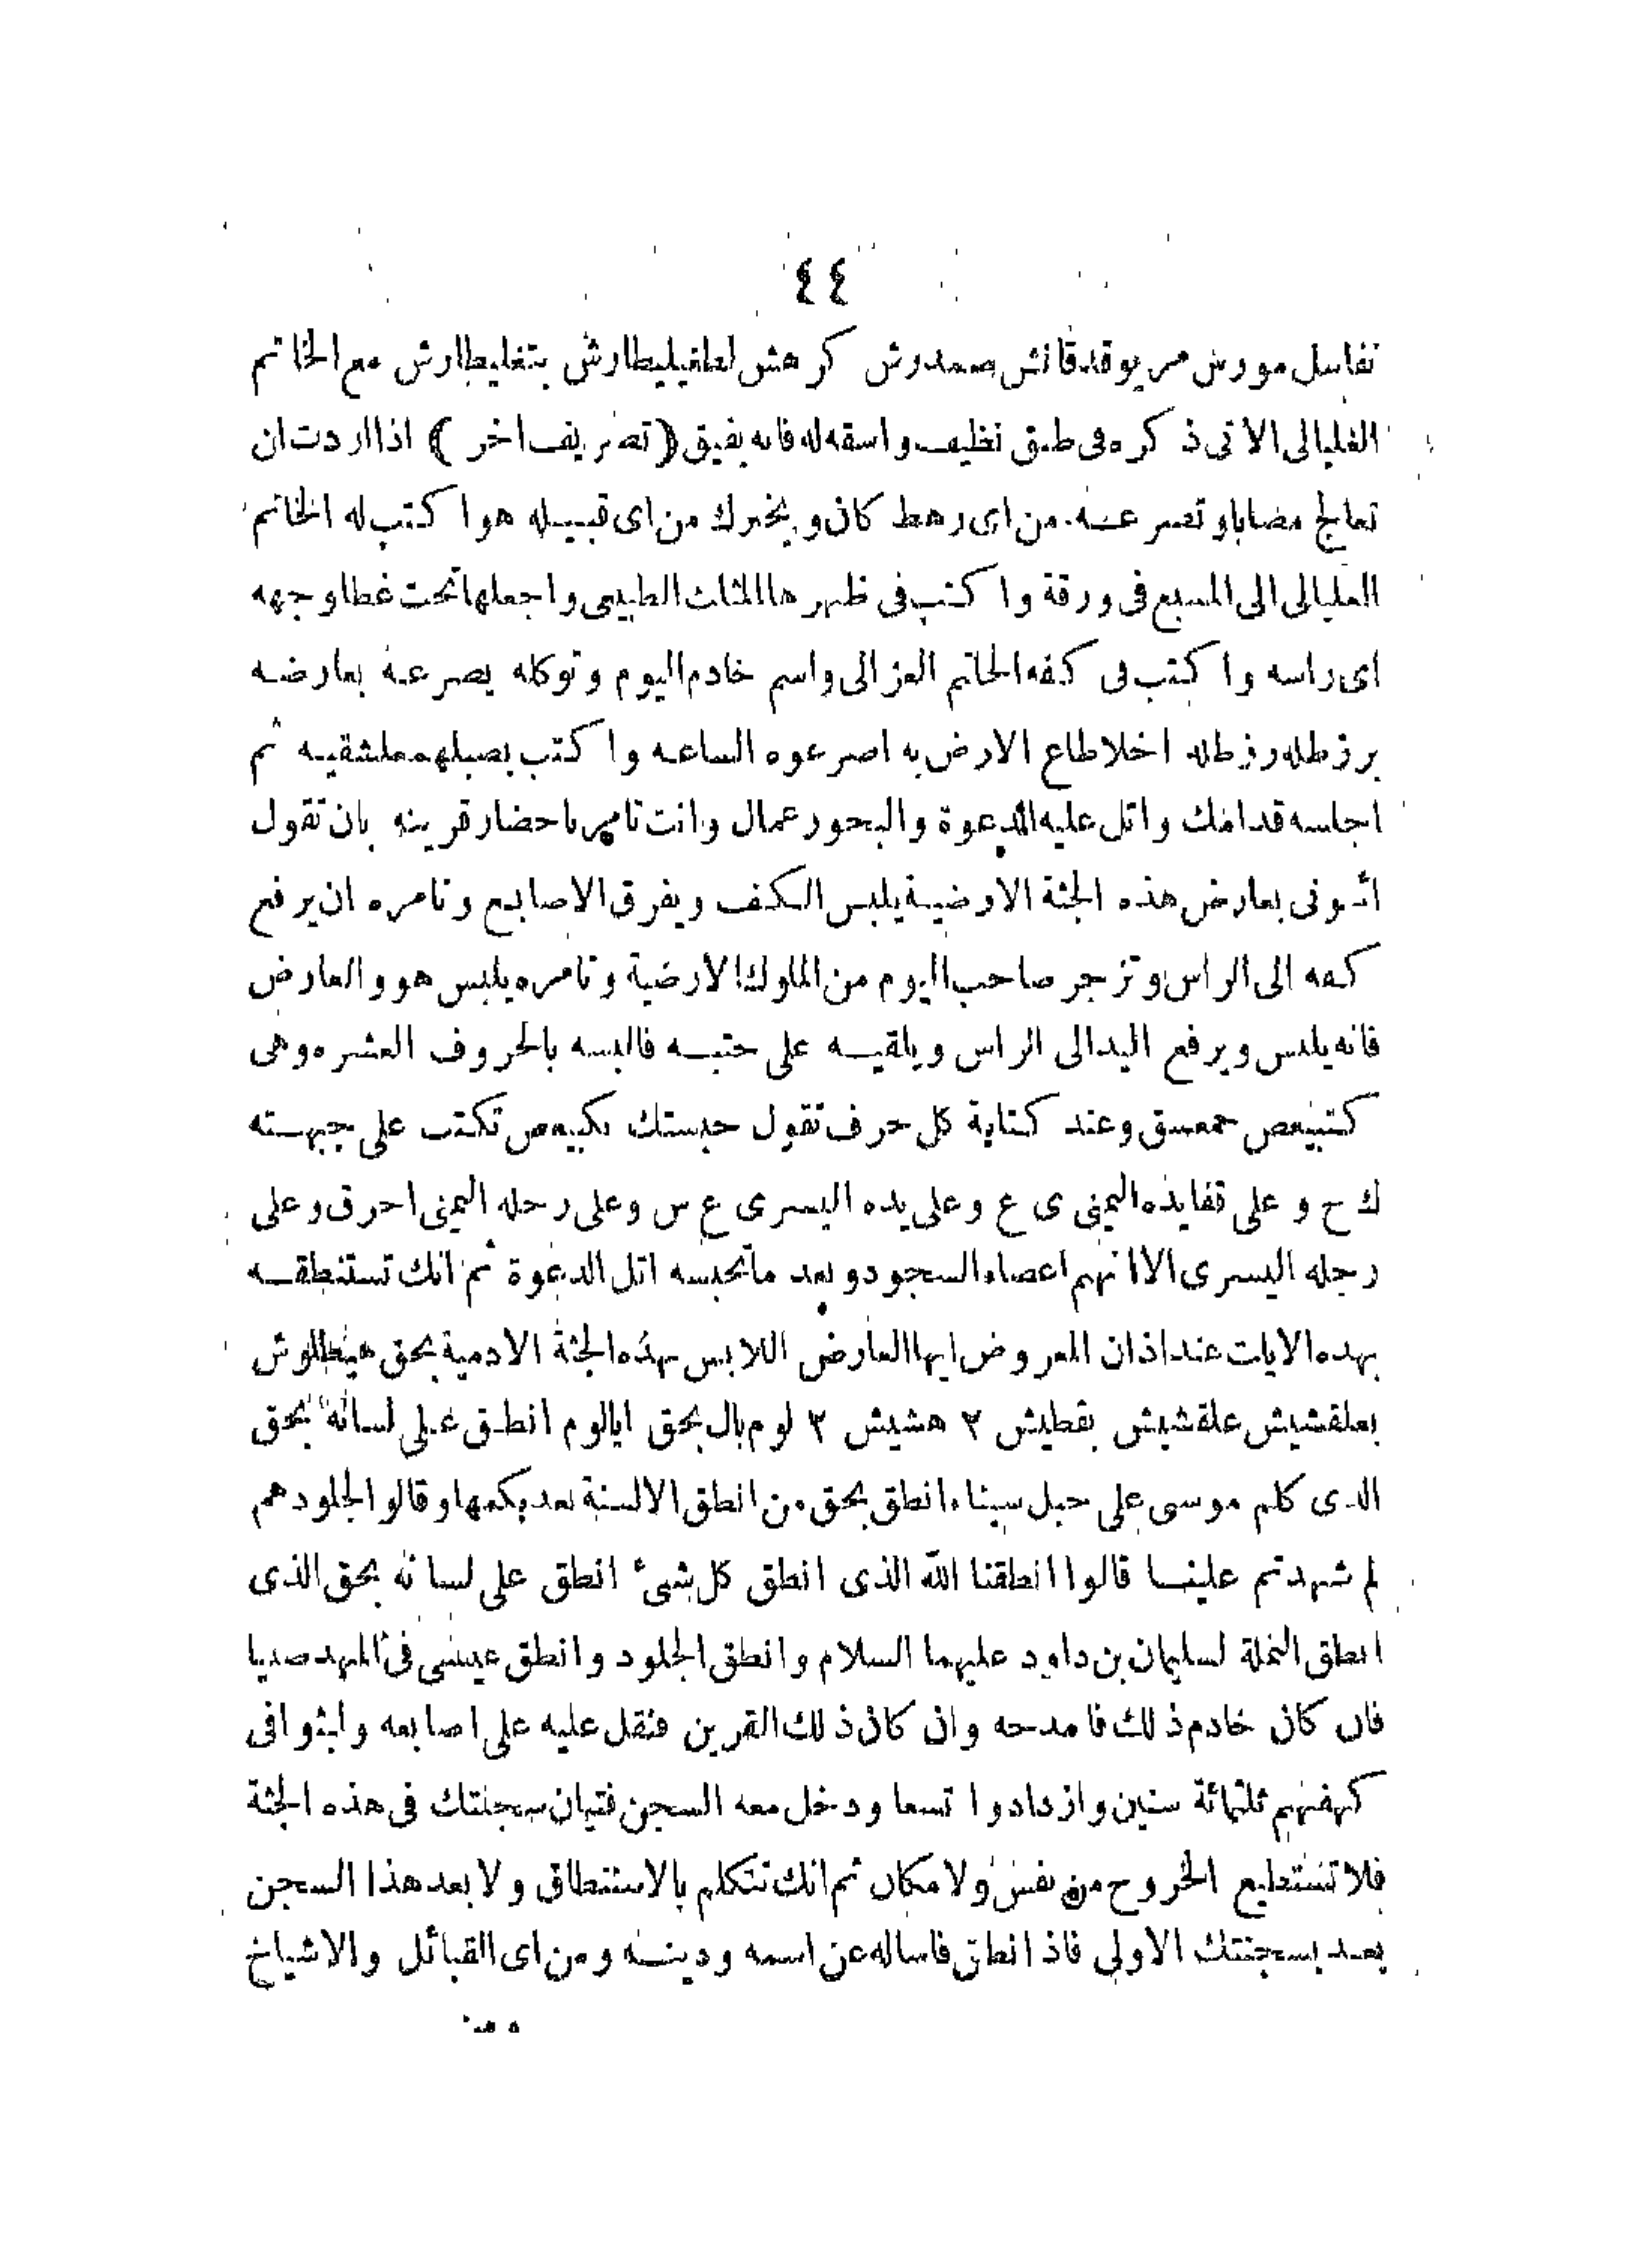 ٤٤
تفاسل مورش مريوقد قانش صمدرش كرهش لعلغيليطارش بتغليطارش مع الخاتم
الغليالى الاتى ذكره فى طبق نظيف واسقه له فانه يفيق (تصريف اخر) اذا اردت ان
تعالج مصابا وتصرعه من اى رهط كان ويخبرك من اى قبيله هو اكتب له الخاتم
العليالى الى المسبع فى ورقة واكتب فى ظهرها المثلث الطيبى واجعلها تحت غطا وجهه
اى راسه واكتب فى كفه الخاتم العزالى واسم خادم اليوم وتوكله يصرعه بعارضه
برزطله رزطله اخلاطاع الارض به اصرعوه الساعه واكتب بصبلهمعلشقيه ثم
اجلسه قدامك واتل عليه الدعوة والبخور عمال وانت تامر باحضار قرينه بان تقول
ائتونى بعارض هذه الجثة الارضية يلبس الكف ويفرق الاصابع وتامره ان يرفع
كفه الى الراس وتزجر صاحب اليوم من الملوك الارضية وتامره يلبس هو والعارض
فانه يلبس ويرفع اليد الى الراس ويلقيه على جنبه فالبسه بالحروف العشره وهى
كهيعص حمعسق وعند كتابة كل حرف تقول حبستك بكهيعص تكتب على جبهته
ك ح و على قفا يده اليمنى ى ع وعلى يده اليسرى ع س وعلى رجله اليمنى احرق وعلى
رجله اليسرى الا انهم اعصاء السجود وبعد ما تحبسه اتل الدعوة ثم انك تستنطقه
بهده الايات عند اذان المعروض ايها العارض اللابس بهذه الجثة الادمية بحق هيطلوش
بعلقشيش علقشيش بقطيش ٢ هشيش ٢ لوم بال بحق ايالوم انطق على لسانه بحق
الذى كلم موسى على جبل سيناء انطق بحق من انطق الالسنة بعد بكمها وقالوا لجلودهم
لم شهدتم علينا قالوا انطقنا الله الذى انطق كل شىء انطق على لسانه بحق الذى
انطق النملة لسليمان بن داود عليهما السلام وانطق الجلود وانطق عيسى فى المهد صبيا
فان كان خادم ذلك فامدحه وان كان ذلك القرين فنقل عليه على اصابعه ولبثوا فى
كهفهم ثلثمائة سنين وازدادوا تسعا ودخل معه السجن فتيان سجنتك فى هذه الجثة
فلا تستطيع الخروج من نفس ولا مكان ثم انك تتكلم بالاستنطاق ولا بعد هذا السجن
بعد بسجنتك الاولى فاذا انطق فاساله عن اسمه ودينه ومن اى القبائل والاشياخ